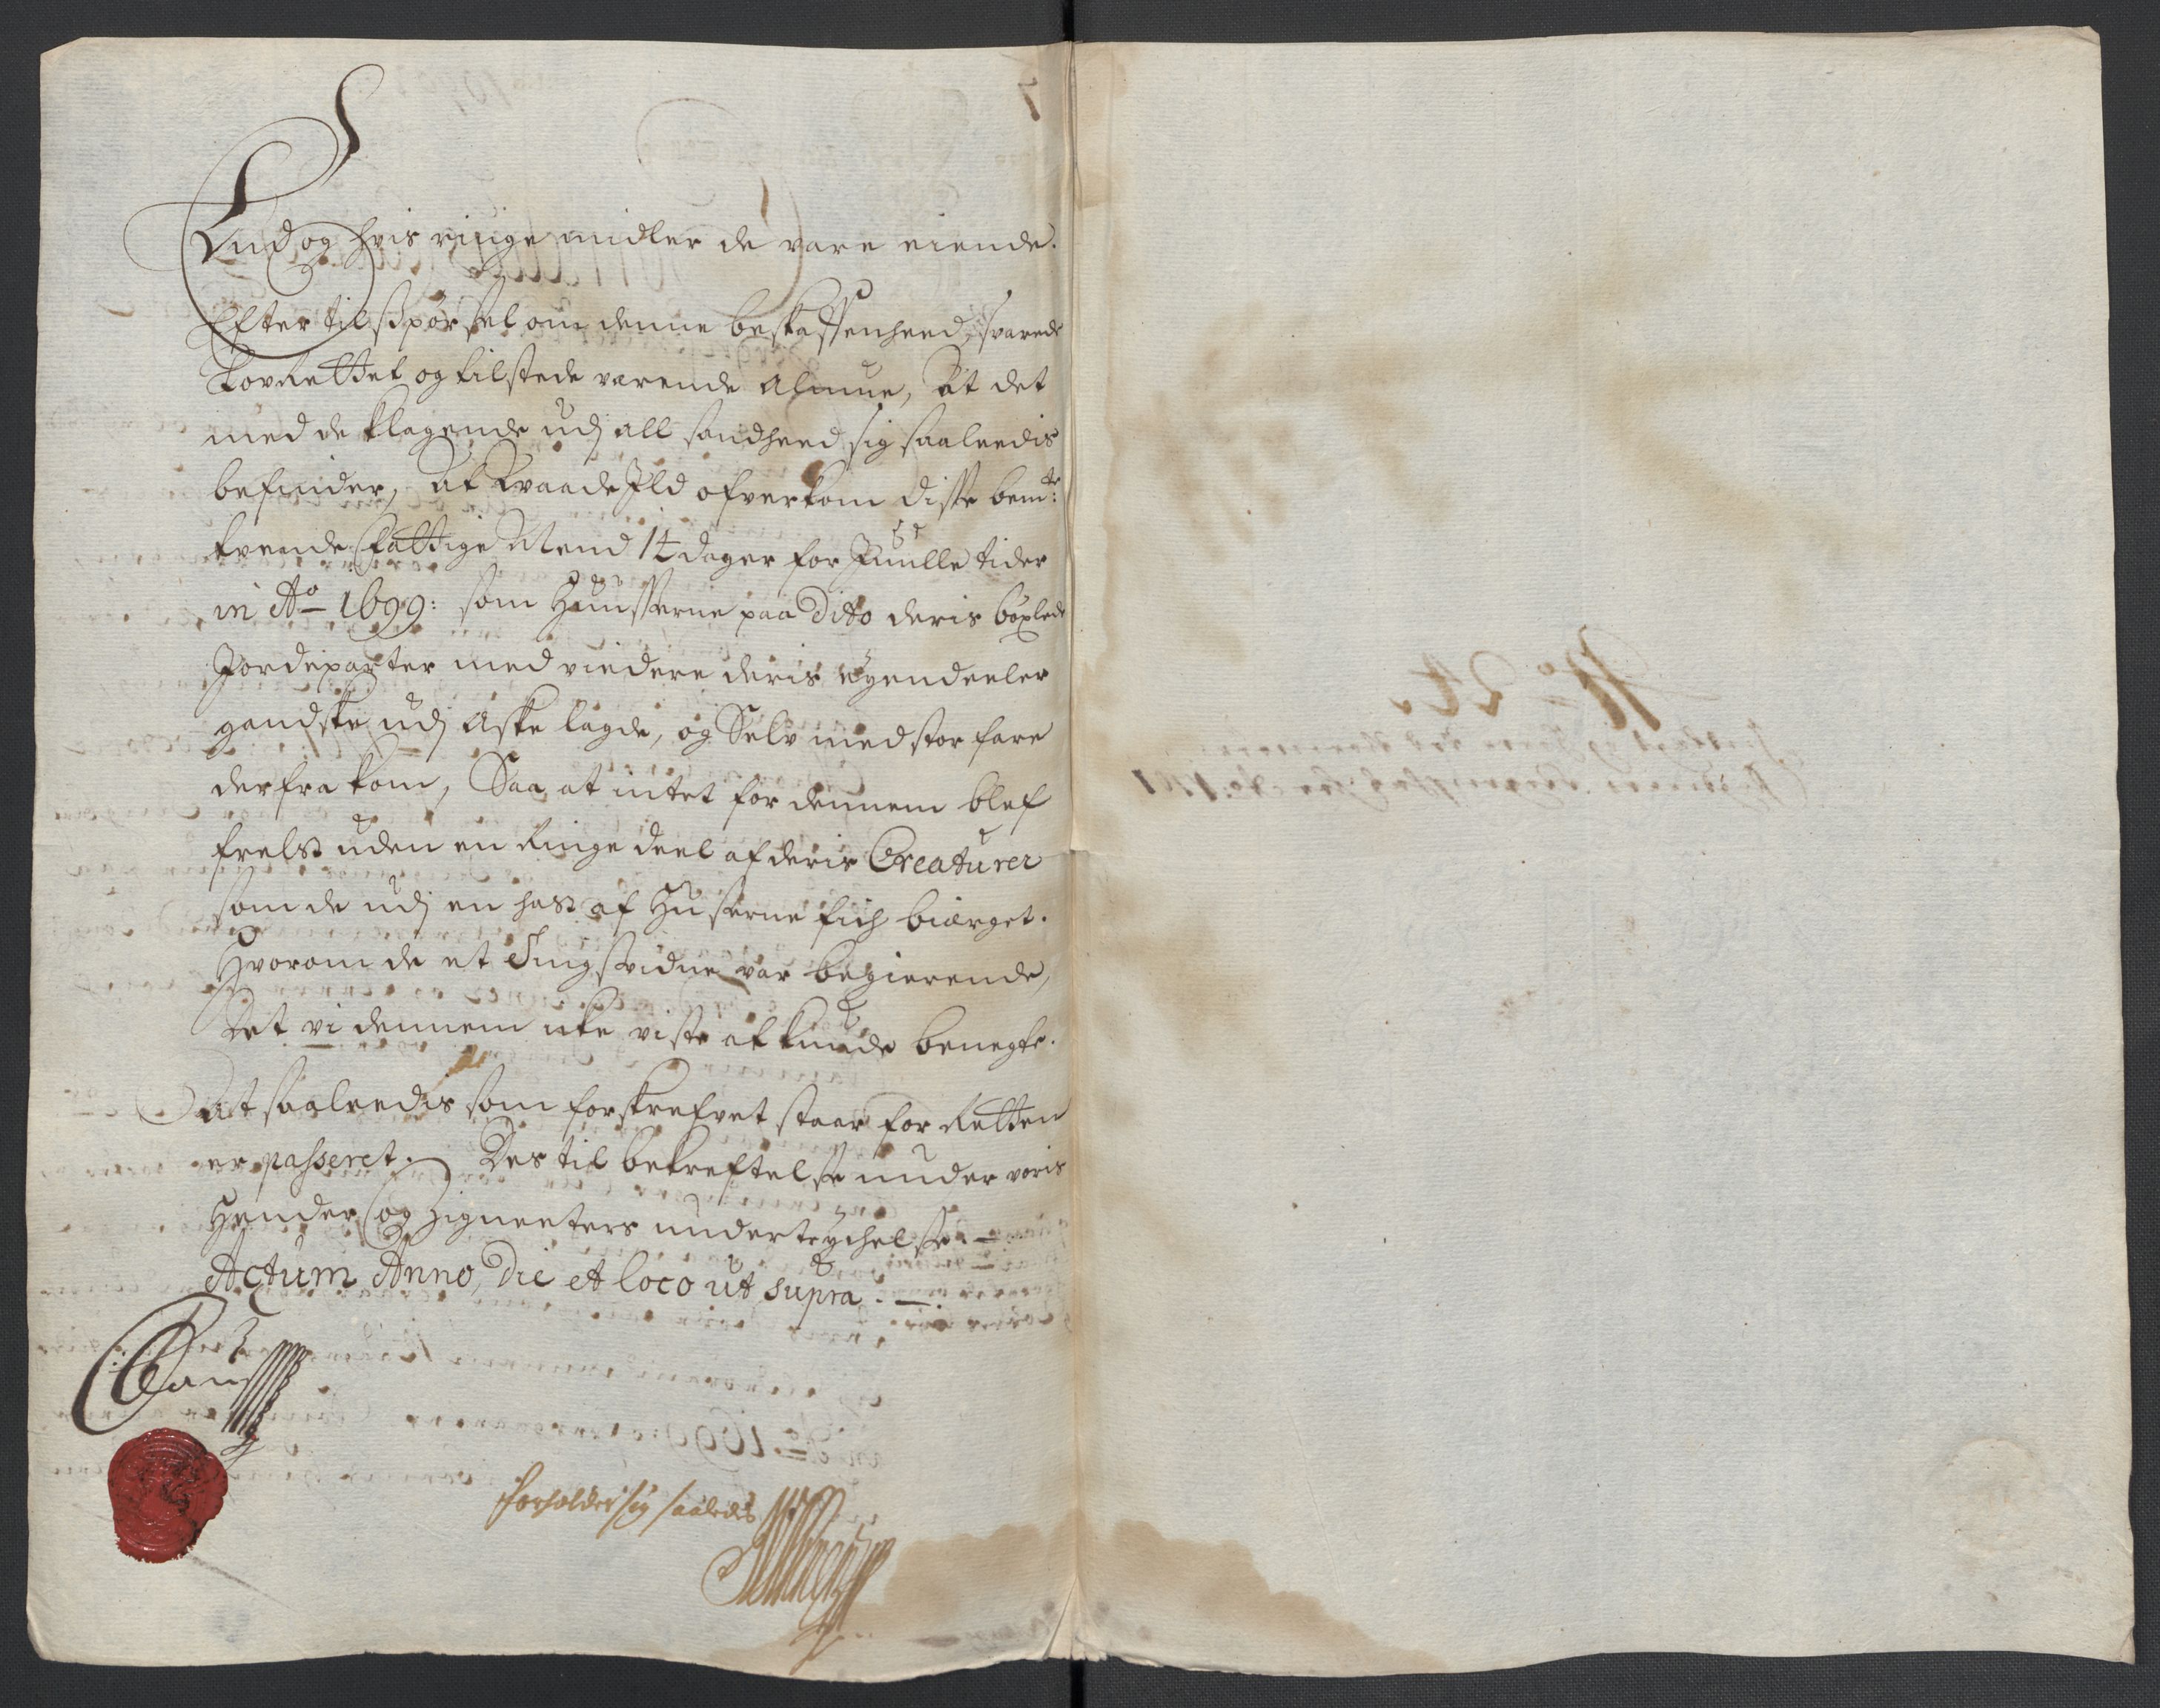 End og hvis ringe midler de vare eiende.
Efter tilspørsel om denne beskaffenheed, svarede
LovRettet og tilstede værende Almue, At det
med de klagende udj all sandheed sig saaleedis
befinder, At Vaade Ild ofverkom disse bemte:
tvende fattige Mend 14 dager for Juulle tider
in Ao 1699: som Huusserne paa Dito deris böxlede
Jordeparter med viedere deris eyendeeler
gandske udj Aske lagde, og Selv med stor fare
derfra kom, Saa at intet for dennem blef
frelst uden en Ringe deel af deris Creaturer
som de udj en hast af Huserne fich biærget.
Hvorom de et Tingsvidne var begierende,
Det vi dennem icke viste at kunde benegte.
At saaleedis som forskrefvet staar for Retten
er passeret. Des til bekreftelse under voris
Hender og Zigneeters undertrychelse.
Actum Anno, Die et loco ut supra.
forholder sig saaledis
No 24.